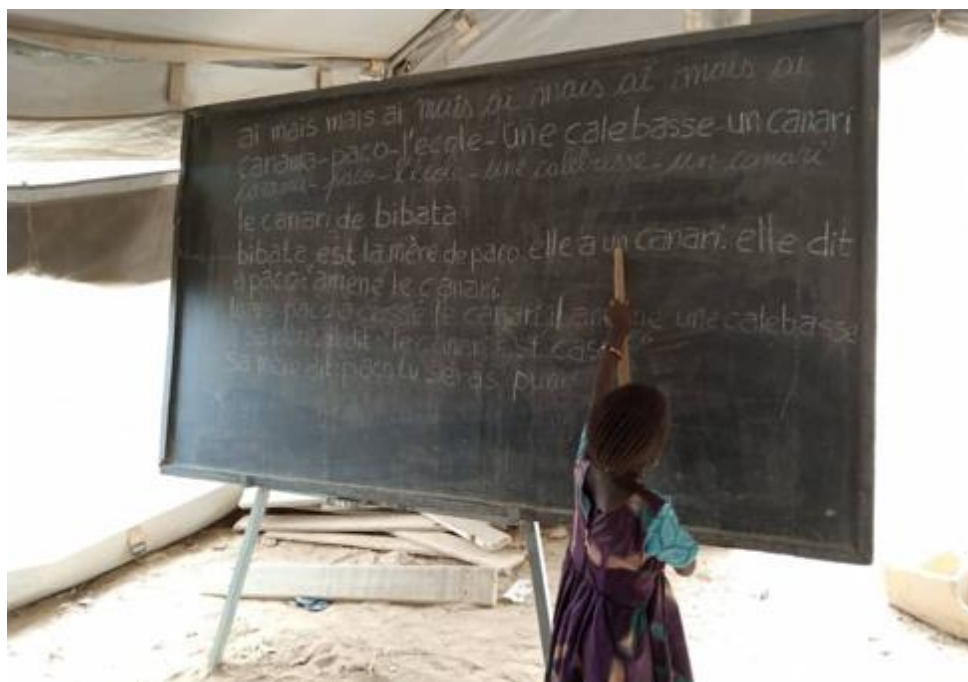 ai mais mais ai mais ai mais ai mais ai
canawa-paco-l'ecole-une calebasse-un canari
canawa-paco-l'école-une calebasse-un canari
le canari de bibata
bibata est la mère de paco. elle a un canari. elle dit
à paco: amène le canari.
paco a cassé le canari. il amène une calebasse
sa mère dit: paco tu seras puni